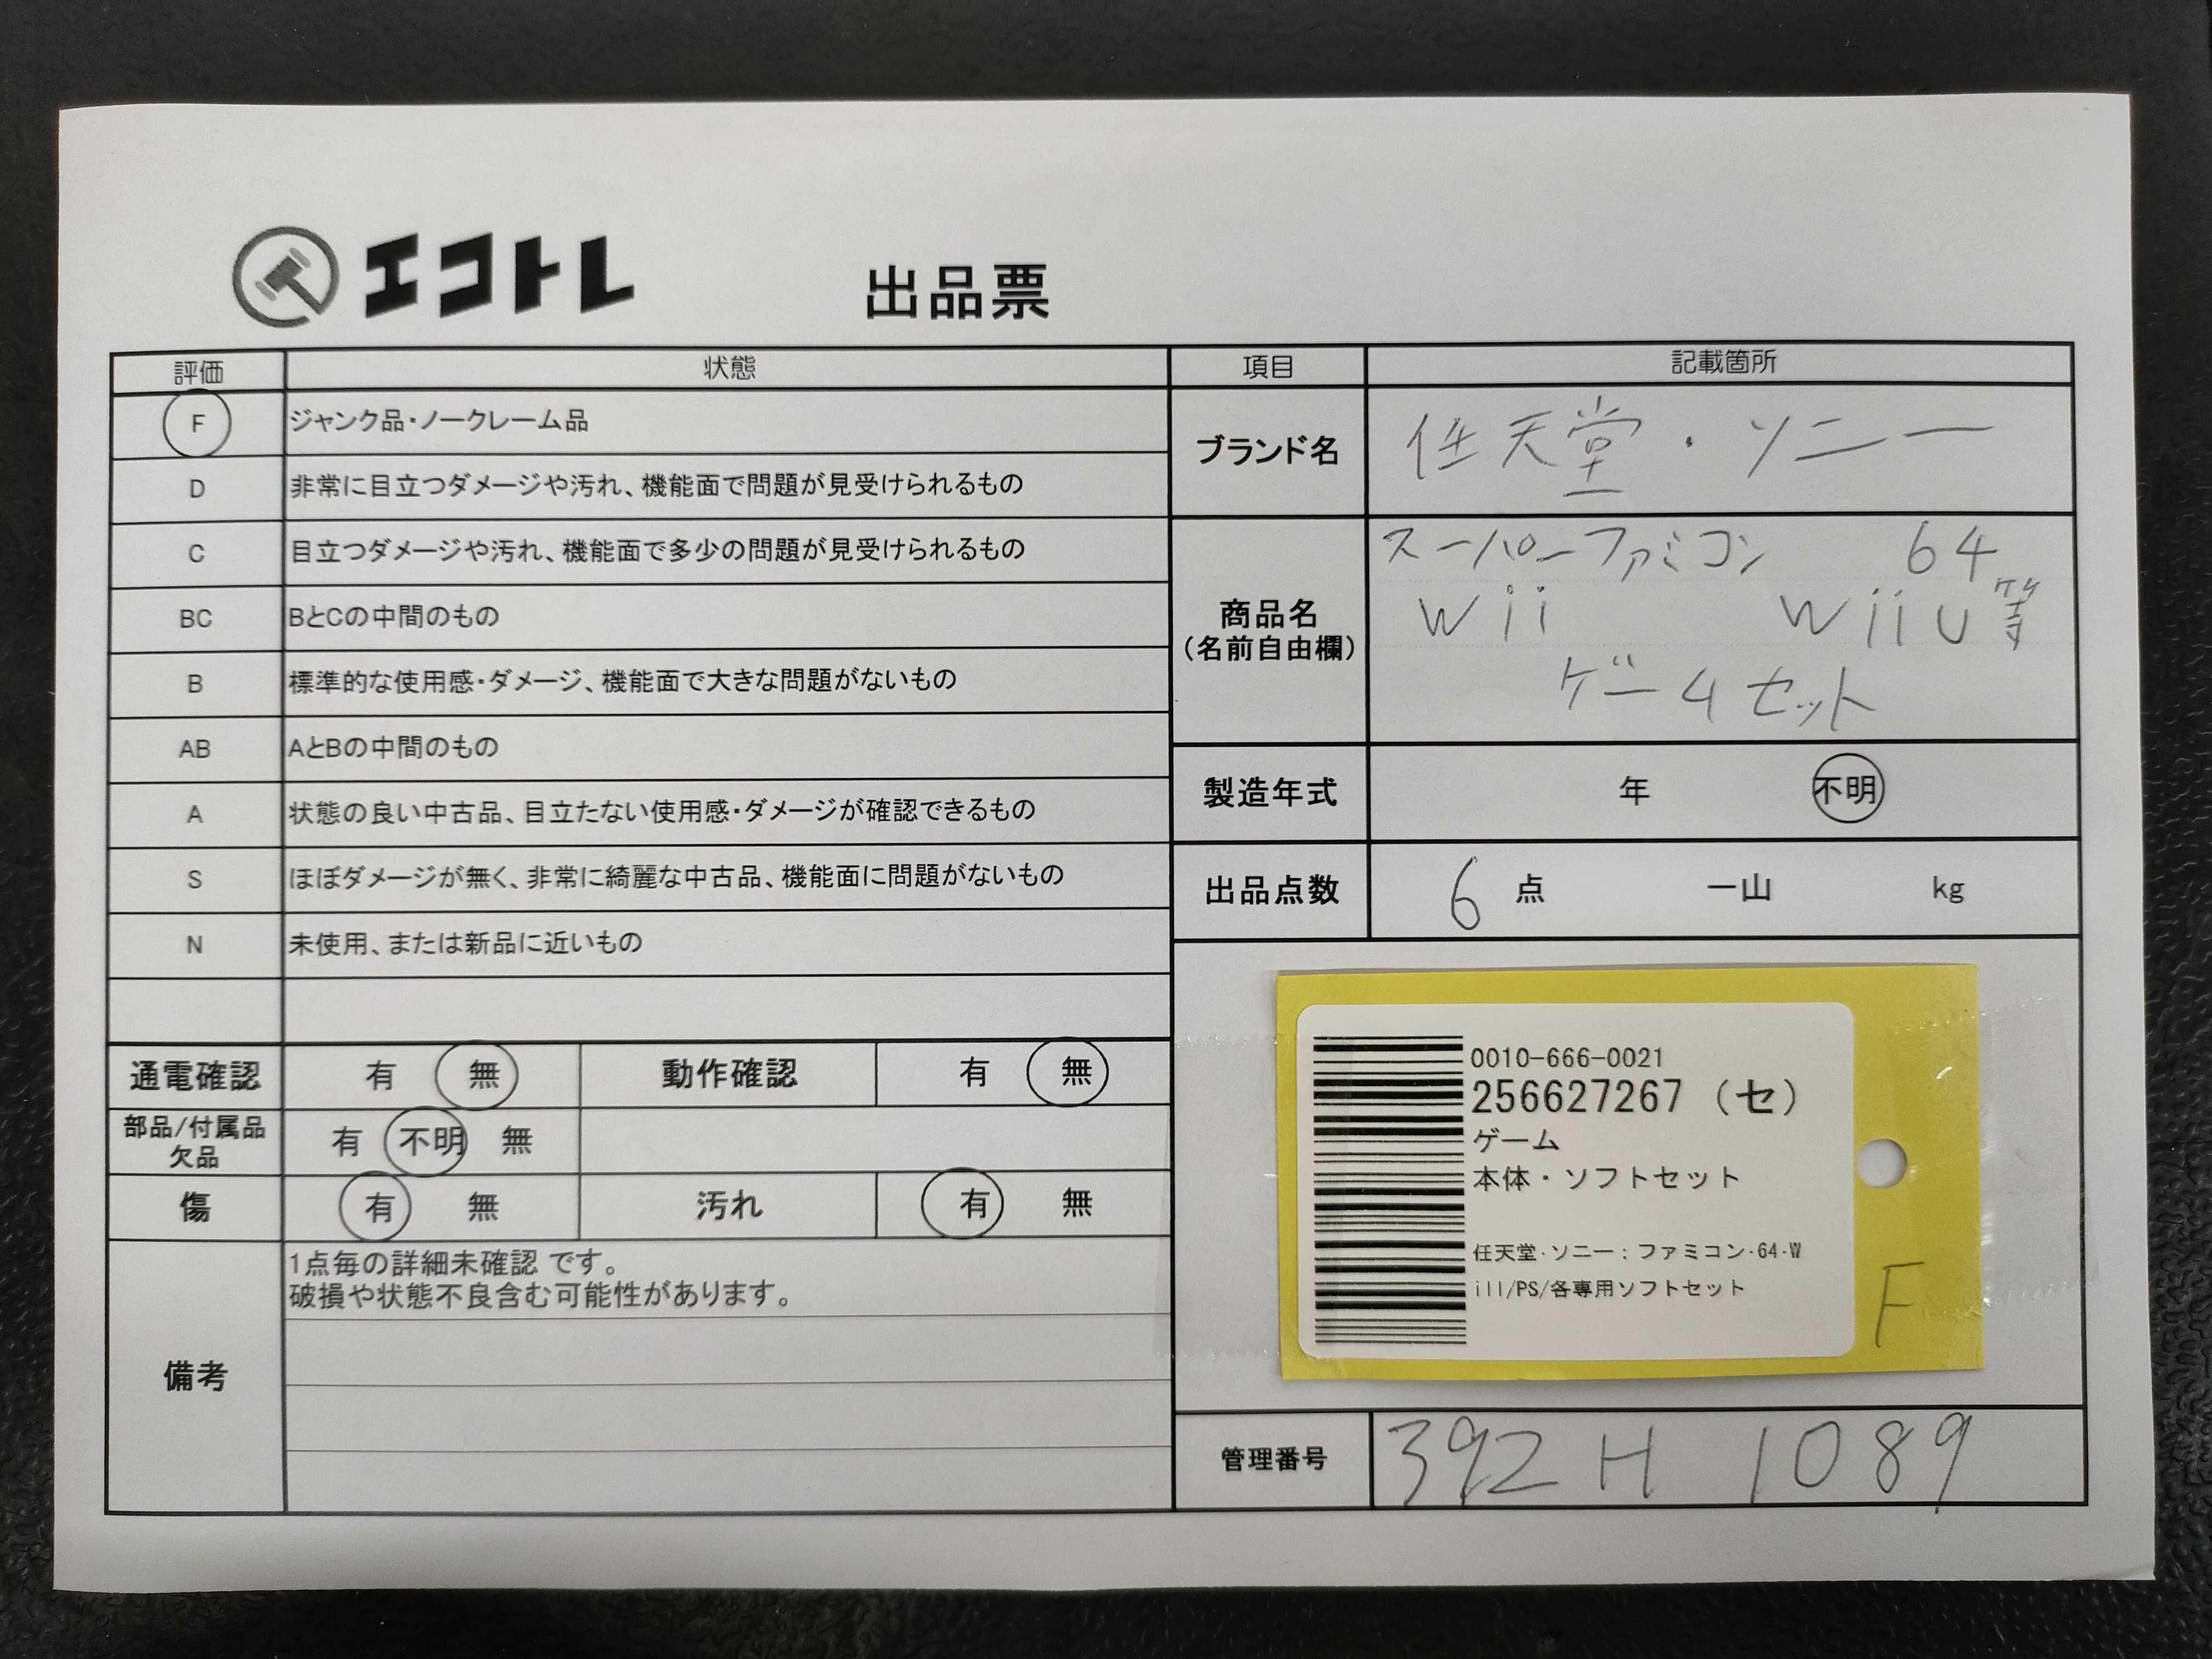 エコトレ
出品票
評価 状態
F ジャンク品・ノークレーム品
D 非常に目立つダメージや汚れ、機能面で問題が見受けられるもの
C 目立つダメージや汚れ、機能面で多少の問題が見受けられるもの
BC BとCの中間のもの
B 標準的な使用感・ダメージ、機能面で大きな問題がないもの
AB AとBの中間のもの
A 状態の良い中古品、目立たない使用感・ダメージが確認できるもの
S ほぼダメージが無く、非常に綺麗な中古品、機能面に問題がないもの
N 未使用、または新品に近いもの
通電確認 有 無 動作確認 有 無
部品/付属品
欠品
有 不明 無
傷 有 無 汚れ 有 無
備考
1点毎の詳細未確認 です。
破損や状態不良含む可能性があります。
項目 記載箇所
ブランド名 任天堂・ソニー
商品名
(名前自由欄)
スーパーファミコン 64
Wii WiiU等
ゲームセット
製造年式 年 不明
出品点数 6 点 一山 kg
0010-666-0021
256627267 (セ)
ゲーム
本体・ソフトセット
任天堂・ソニー:ファミコン・64・W
ill/PS/各専用ソフトセット
F
管理番号 392H 1089